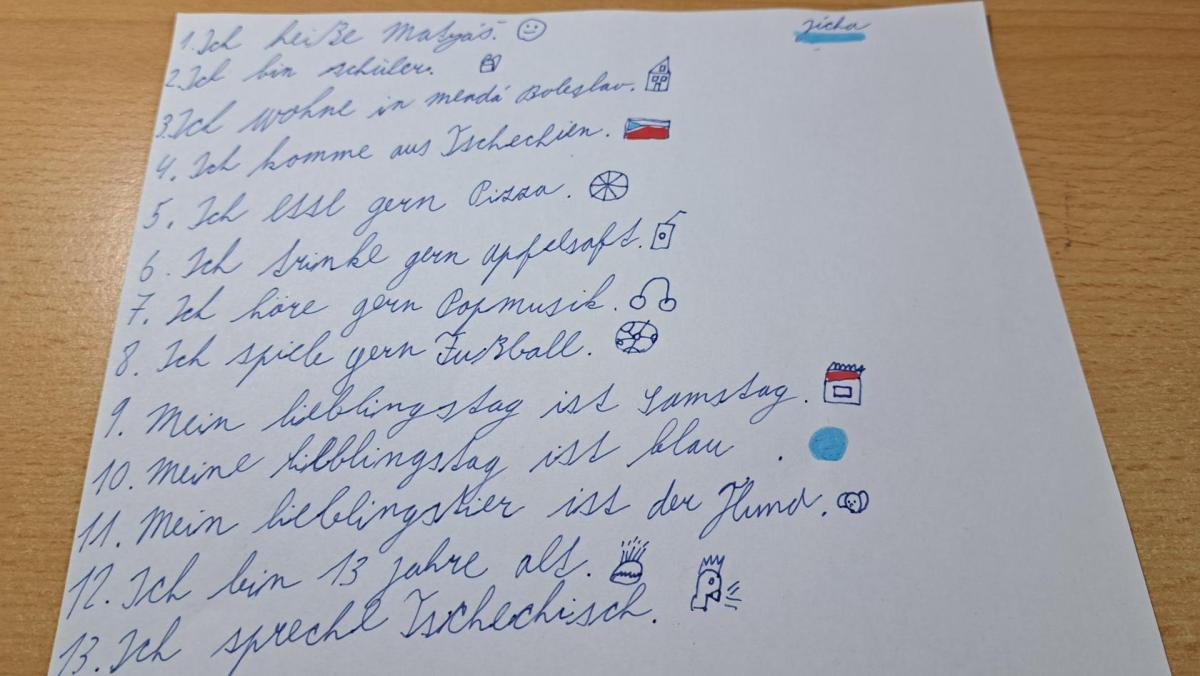 Jícha
1. Ich heiße Matyáš.
2. Ich bin schüler.
3. Ich wohne in mladá Boleslav.
4. Ich komme aus Tschechien.
5. Ich esse gern Pizza.
6. Ich trinke gern apfelsaft.
7. Ich höre gern Popmusik.
8. Ich spiele gern Fußball.
9. Mein lieblingstag ist samstag.
10. Meine lieblingstag ist blau.
11. Mein lieblingstier ist der Hund.
12. Ich bin 13 jahre alt.
13. Ich spreche Tschechisch.